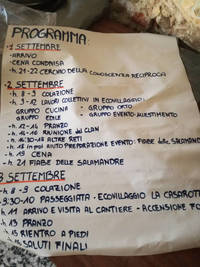 PROGRAMMA:
1 SETTEMBRE
- ARRIVO
- CENA CONDIVISA
- h. 21-22 CERCHIO DELLA CONOSCENZA RECIPROCA
- 2 SETTEMBRE
- h. 8-9 COLAZIONE
- h. 9-12 LAVORI COLLETTIVI IN ECOVILLAGGIO:
GRUPPO CUCINA - GRUPPO ORTO
GRUPPO EDILE - GRUPPO EVENTO: ALLESTIMENTO
- h. 12-14 PRANZO
- h. 14-16 RIUNIONE DEL CLAN
- h. 16-18 ALTRE RETI
- h. 18 in poi AIUTO PREPARAZIONE EVENTO: FIABE delle SALAMANDRE
- h. 19 CENA
- h. 21 FIABE DELLE SALAMANDRE
3 SETTEMBRE
- h 8-9 COLAZIONE
9:30-10 PASSEGGIATA - ECOVILLAGGIO LA CASAROTTA
h 11 ARRIVO E VISITA AL CANTIERE - ACCENSIONE
h 13 PRANZO
h 15 RIENTRO A PIEDI
SALUTI FINALI